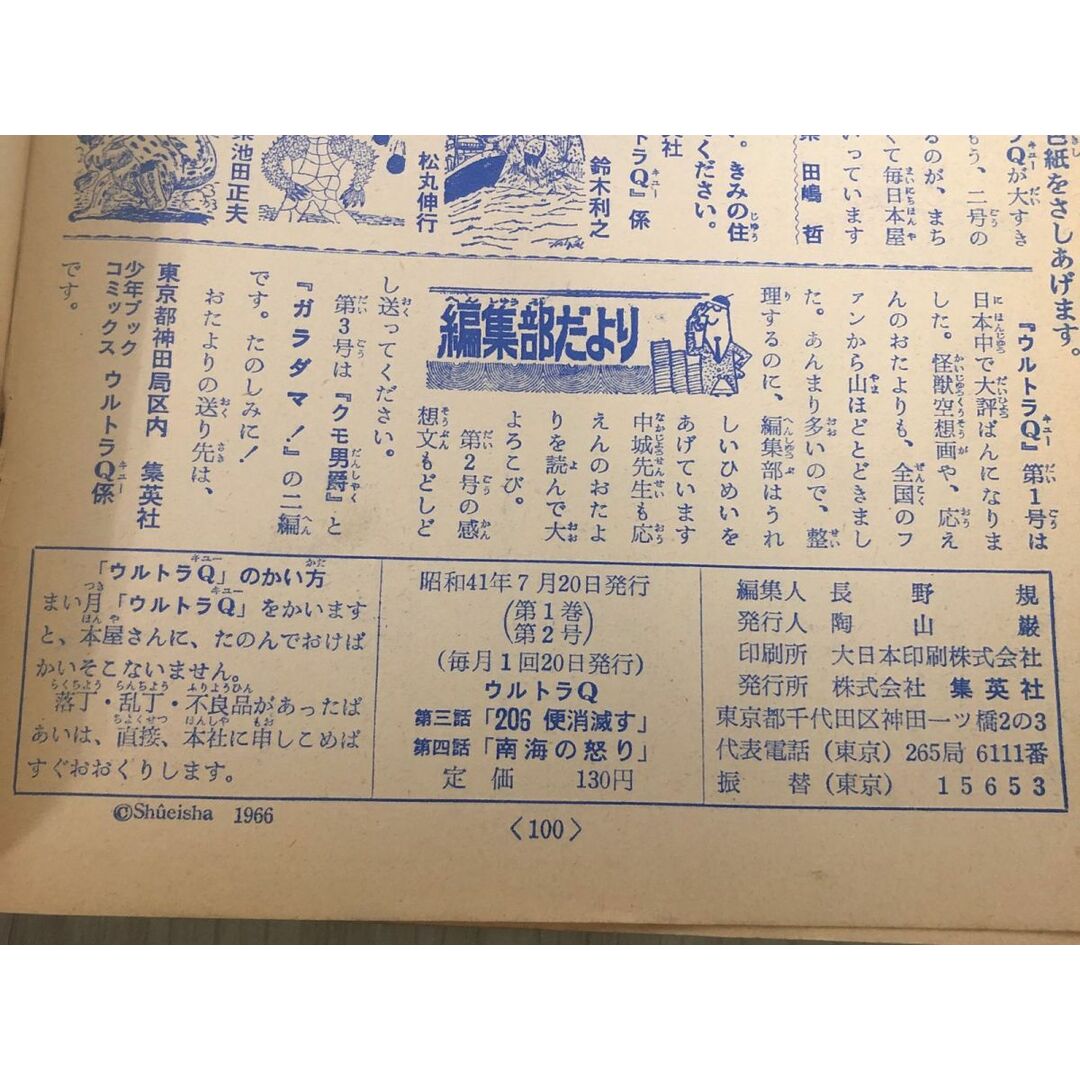 色紙をさしあげます。
Qが大すき
もう、二号の
るのが、まち
くて毎日本屋
いっています
田嶋 哲
。きみの住
ください。
トラQ』係
鈴木利之
松丸伸行
池田正夫
編集部だより
『ウルトラQ』第1号は
日本中で大評ばんになりま
した。怪獣空想画や、応え
んのおたよりも、全国のフ
ァンから山ほどとどきまし
た。あんまり多いので、整
理するのに、編集部はうれ
しいひめいを
あげています
中城先生も応
えんのおたよ
りを読んで大
よろこび。
第2号の感
想文もどしど
し送ってください。
第3号は『クモ男爵』と
『ガラダマ！』の二編
です。たのしみに！
おたよりの送り先は、
東京都神田局区内 集英社
少年ブック
コミックス ウルトラQ係
です。
「ウルトラQ」のかい方
まい月「ウルトラQ」をかいます
と、本屋さんに、たのんでおけば
かいそこないません。
落丁・乱丁・不良品があったば
あいは、直接、本社に申しこめば
すぐおおくりします。
昭和41年7月20日発行
(第1巻)
(第2号)
(毎月1回20日発行)
ウルトラQ
第三話「206便消滅す」
第四話「南海の怒り」
定価 130円
編集人 長野規
発行人 陶山巌
印刷所 大日本印刷株式会社
発行所 株式会社 集英社
東京都千代田区神田一ツ橋2の3
代表電話(東京)265局6111番
振替(東京)15653
©Shûeisha 1966
〈100〉